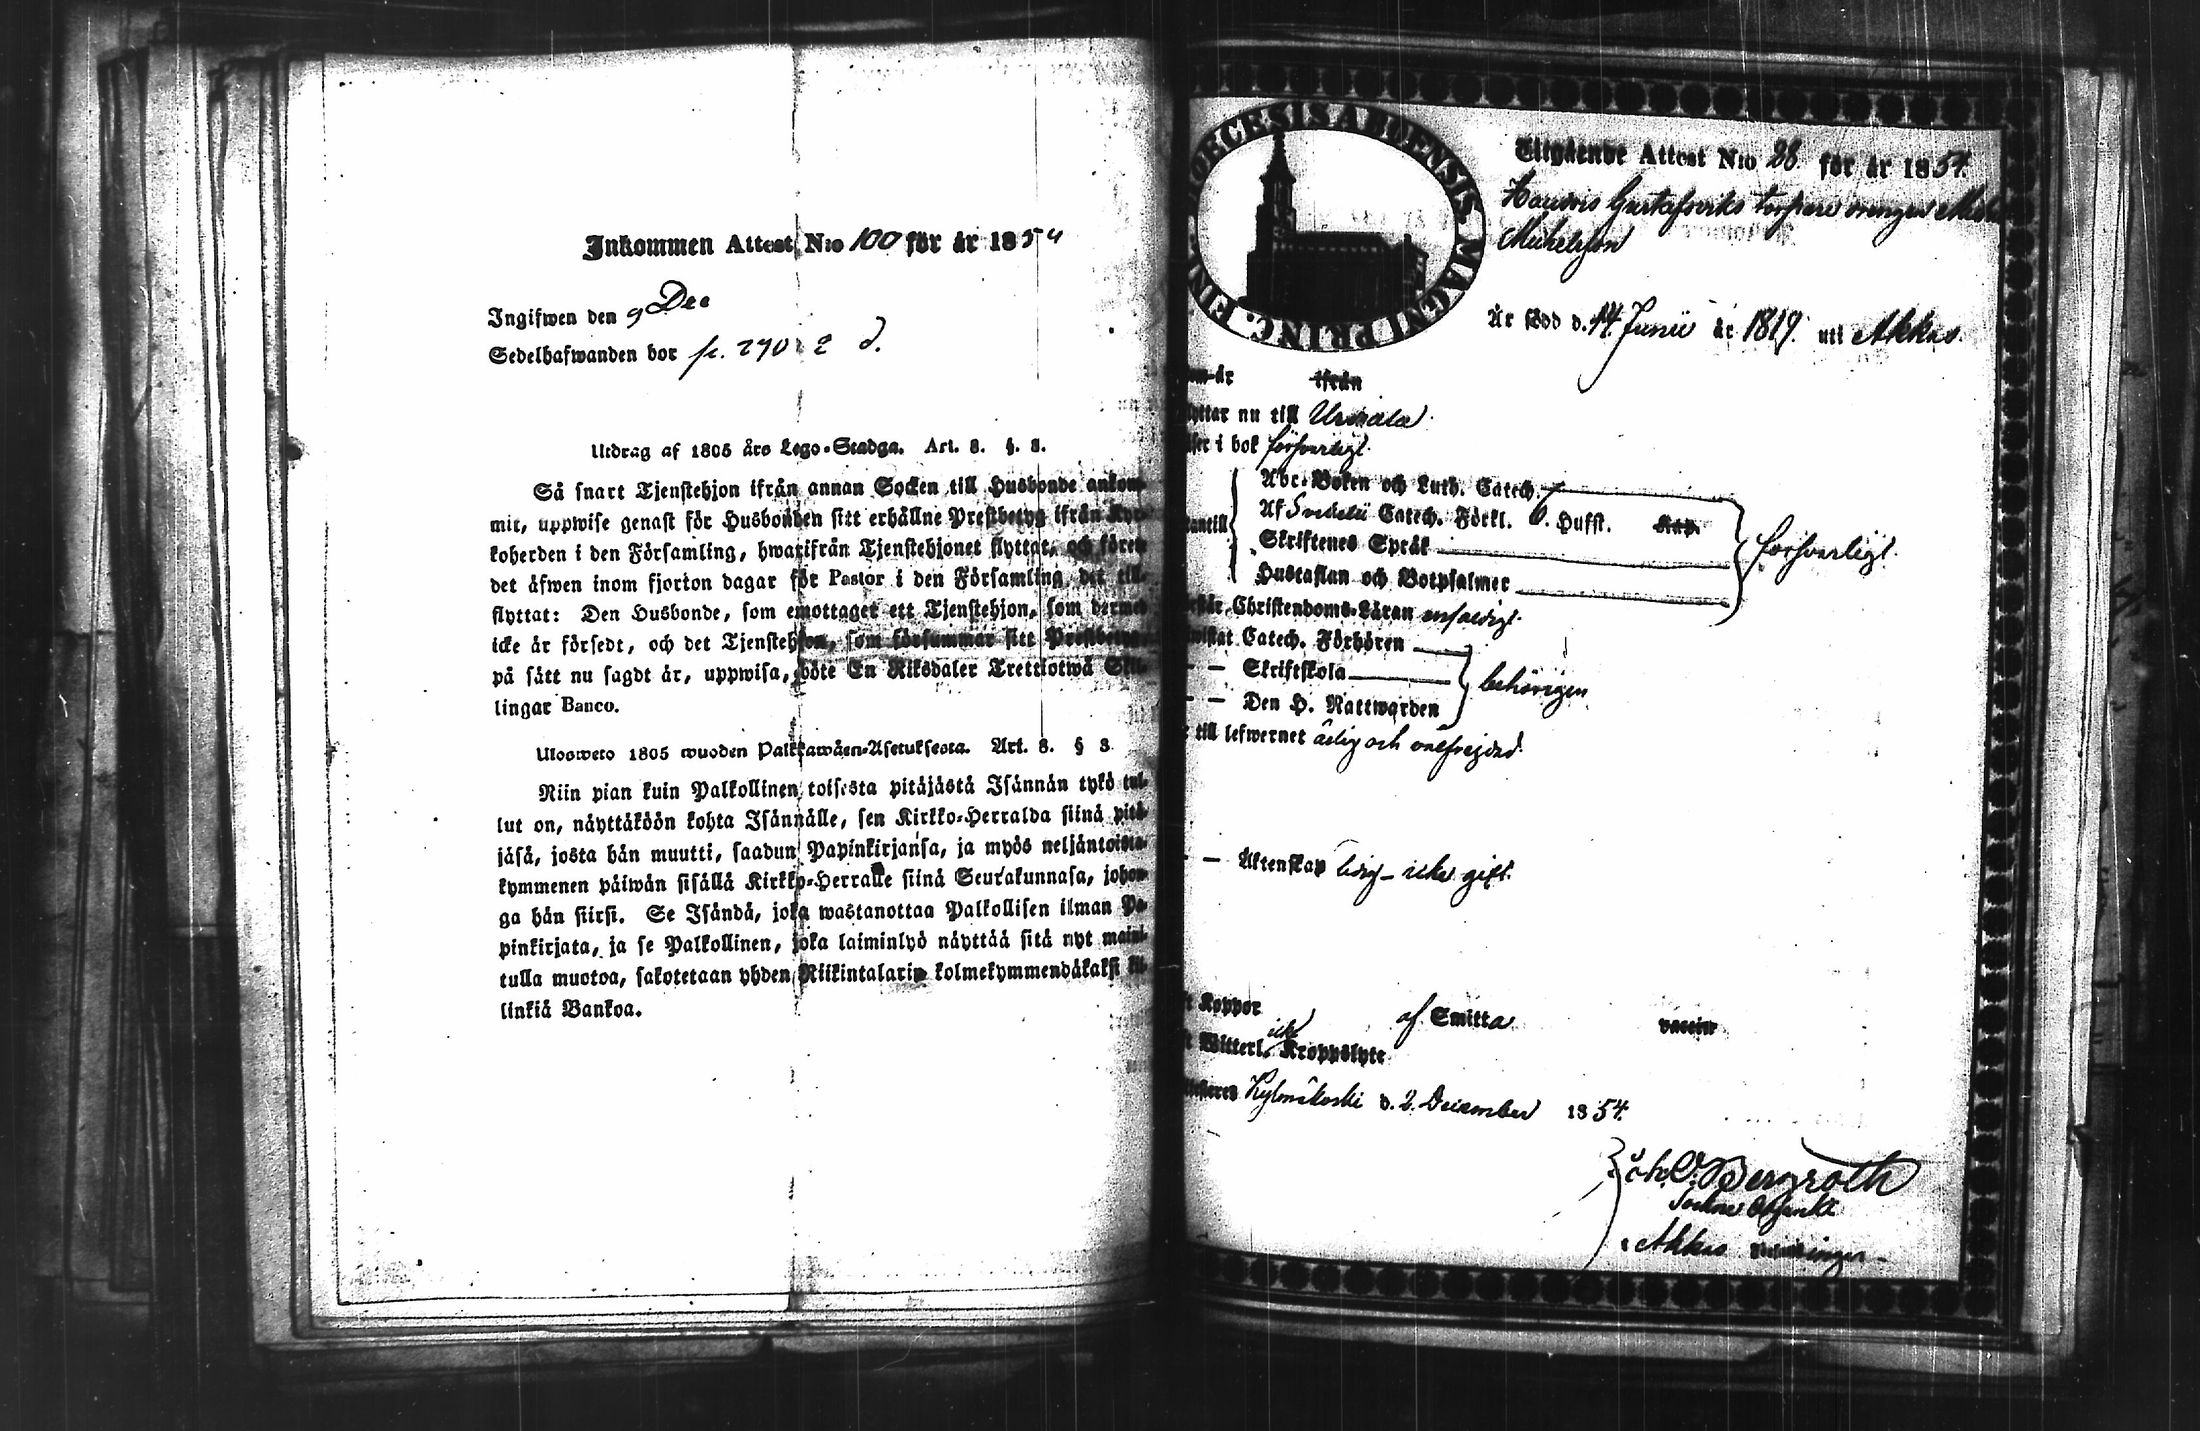 Inkommen Attest N:o 100 för år 1854
Ingifwen den 9 Dec
Sedelhafwanden bor p. 270 2 d.
Utdrag af 1805 års Lego-Stadga. Art. 8. §. 3.
Så snart Tjenstehjon ifrån annan Socken till Husbonde ankom-
mit, uppwise genast för Husbonden sitt erhållne Prestbetyg ifrån Kyr-
koherden i den Församling, hwarifrån Tjenstehjonet flyttat, och förete
det äfwen inom fjorton dagar för Pastor i den Församling det till-
flyttat: Den Husbonde, som emottager ett Tjenstehjon, som dermed
icke är försedt, och det Tjenstehjon, som försummar sitt Prestbetyg,
på sätt nu sagdt är, uppwisa, böte En Riksdaler Trettiotwå Skil-
lingar Banco.
Ulosweto 1805 wuoden Palkkawäen-Asetuksesta. Art. 8. § 3
Niin pian kuin Palkollinen toisesta pitäjästä Isännän tykö tul-
lut on, näyttäköön kohta Isännälle, sen Kirkko-Herralda siinä pitä-
jäsä, josta hän muutti, saadun Papinkirjansa, ja myös neljäntoista-
kymmenen päiwän sisällä Kirkko-Herralle siinä Seurakunnasa, johon-
ga hän siirsi. Se Isändä, joka wastanottaa Palkollisen ilman Pa-
pinkirjata, ja se Palkollinen, joka laiminlyö näyttää sitä nyt maini-
tulla muotoa, sakotetaan yhden Riikintalarin kolmekymmendäkaksi kil-
linkiä Bankoa.
DIOECESIS ABOENSIS MAGNI PRINC. FINL.
Utgående Attest N:o 28 för år 1854.
Gustafsveks torpare drengen
Michelsson
Är född d. 14 Junii år 1819. uti Akkas.
ifrån
flyttar nu till Urdiala
läser i bok försvarligt.
Abc-Boken och Luth. Catech.
Af Svebelii Catech. Förkl. 6. Hufst. Kap.
Skriftenes Språk
Hustaflan och Botpsalmer
försvarligt.
Christendoms-Läran enfaldigt.
Catech. Förhören
— — Skriftskola
— — Den H. Nattwarden
behörigen
till lefwernet ärlig och välfrejdad.
— — Äktenskap ledig – icke gift.
Koppor af Smitta vaccin
Witterl. icke Kroppslyte
Kylmäkoski d. 2. December 1854.
Bergroth
Sockne Adjunkt
i Akkas